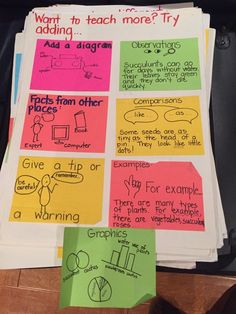 Want to teach more? Try
adding...
Add a diagram
Observations
Succulunts can go
for days without water.
Their leaves stay green
and they don't die
quickly.
Facts from other
places:
Book
Expert
computer
Comparisons
like
as
Some seeds are as
tiny as the head of a
pin. They look like little
dots!
Give a tip or
a warning
be careful!
remember..
Examples
For example...
There are many types
of plants. For example,
there are vegetables, succulents
roses
Graphics